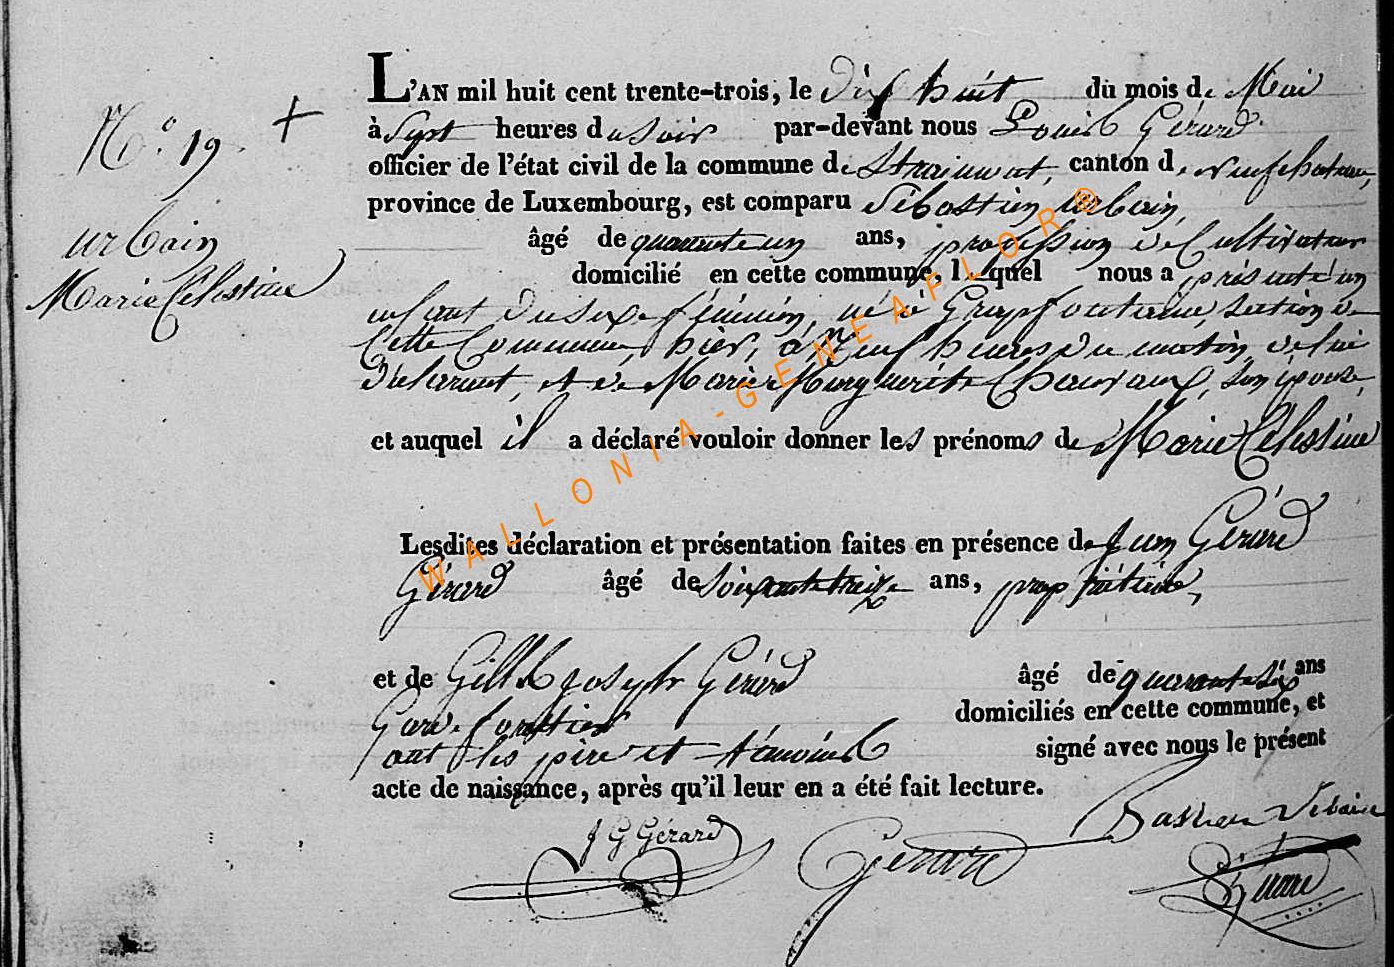 L'AN mil huit cent trente-trois, le dix huit du mois de Mai
N.° 19
à Sept heures du soir par-devant nous Louis Gérard
officier de l'état civil de la commune de Straimont, canton de neufchateau,
province de Luxembourg, est comparu Sébastien urbain,
urbain
Marie Célestine
âgé de quarante un ans, profession de Cultivateur
domicilié en cette commune, lequel nous a présenté un
enfant du sexe féminin, né à Grapfontaine, section de
Cette Commune, hier, à neuf heures du matin, de lui
déclarant, et de Marie Marguerite Chauvaux, son épouse,
et auquel il a déclaré vouloir donner les prénoms de Marie Célestine
Lesdites déclaration et présentation faites en présence de Jean Gérard
Gérard âgé de soixante treize ans, propriétaire,
et de Gille Joseph Gérard âgé de quarante six ans
Garde forestier domiciliés en cette commune, et
ont les père et témoins signé avec nous le présent
acte de naissance, après qu'il leur en a été fait lecture.
J G Gérard Gerard Bastien Urbain
Gérard
WALLONIA-GENEAFLOR®